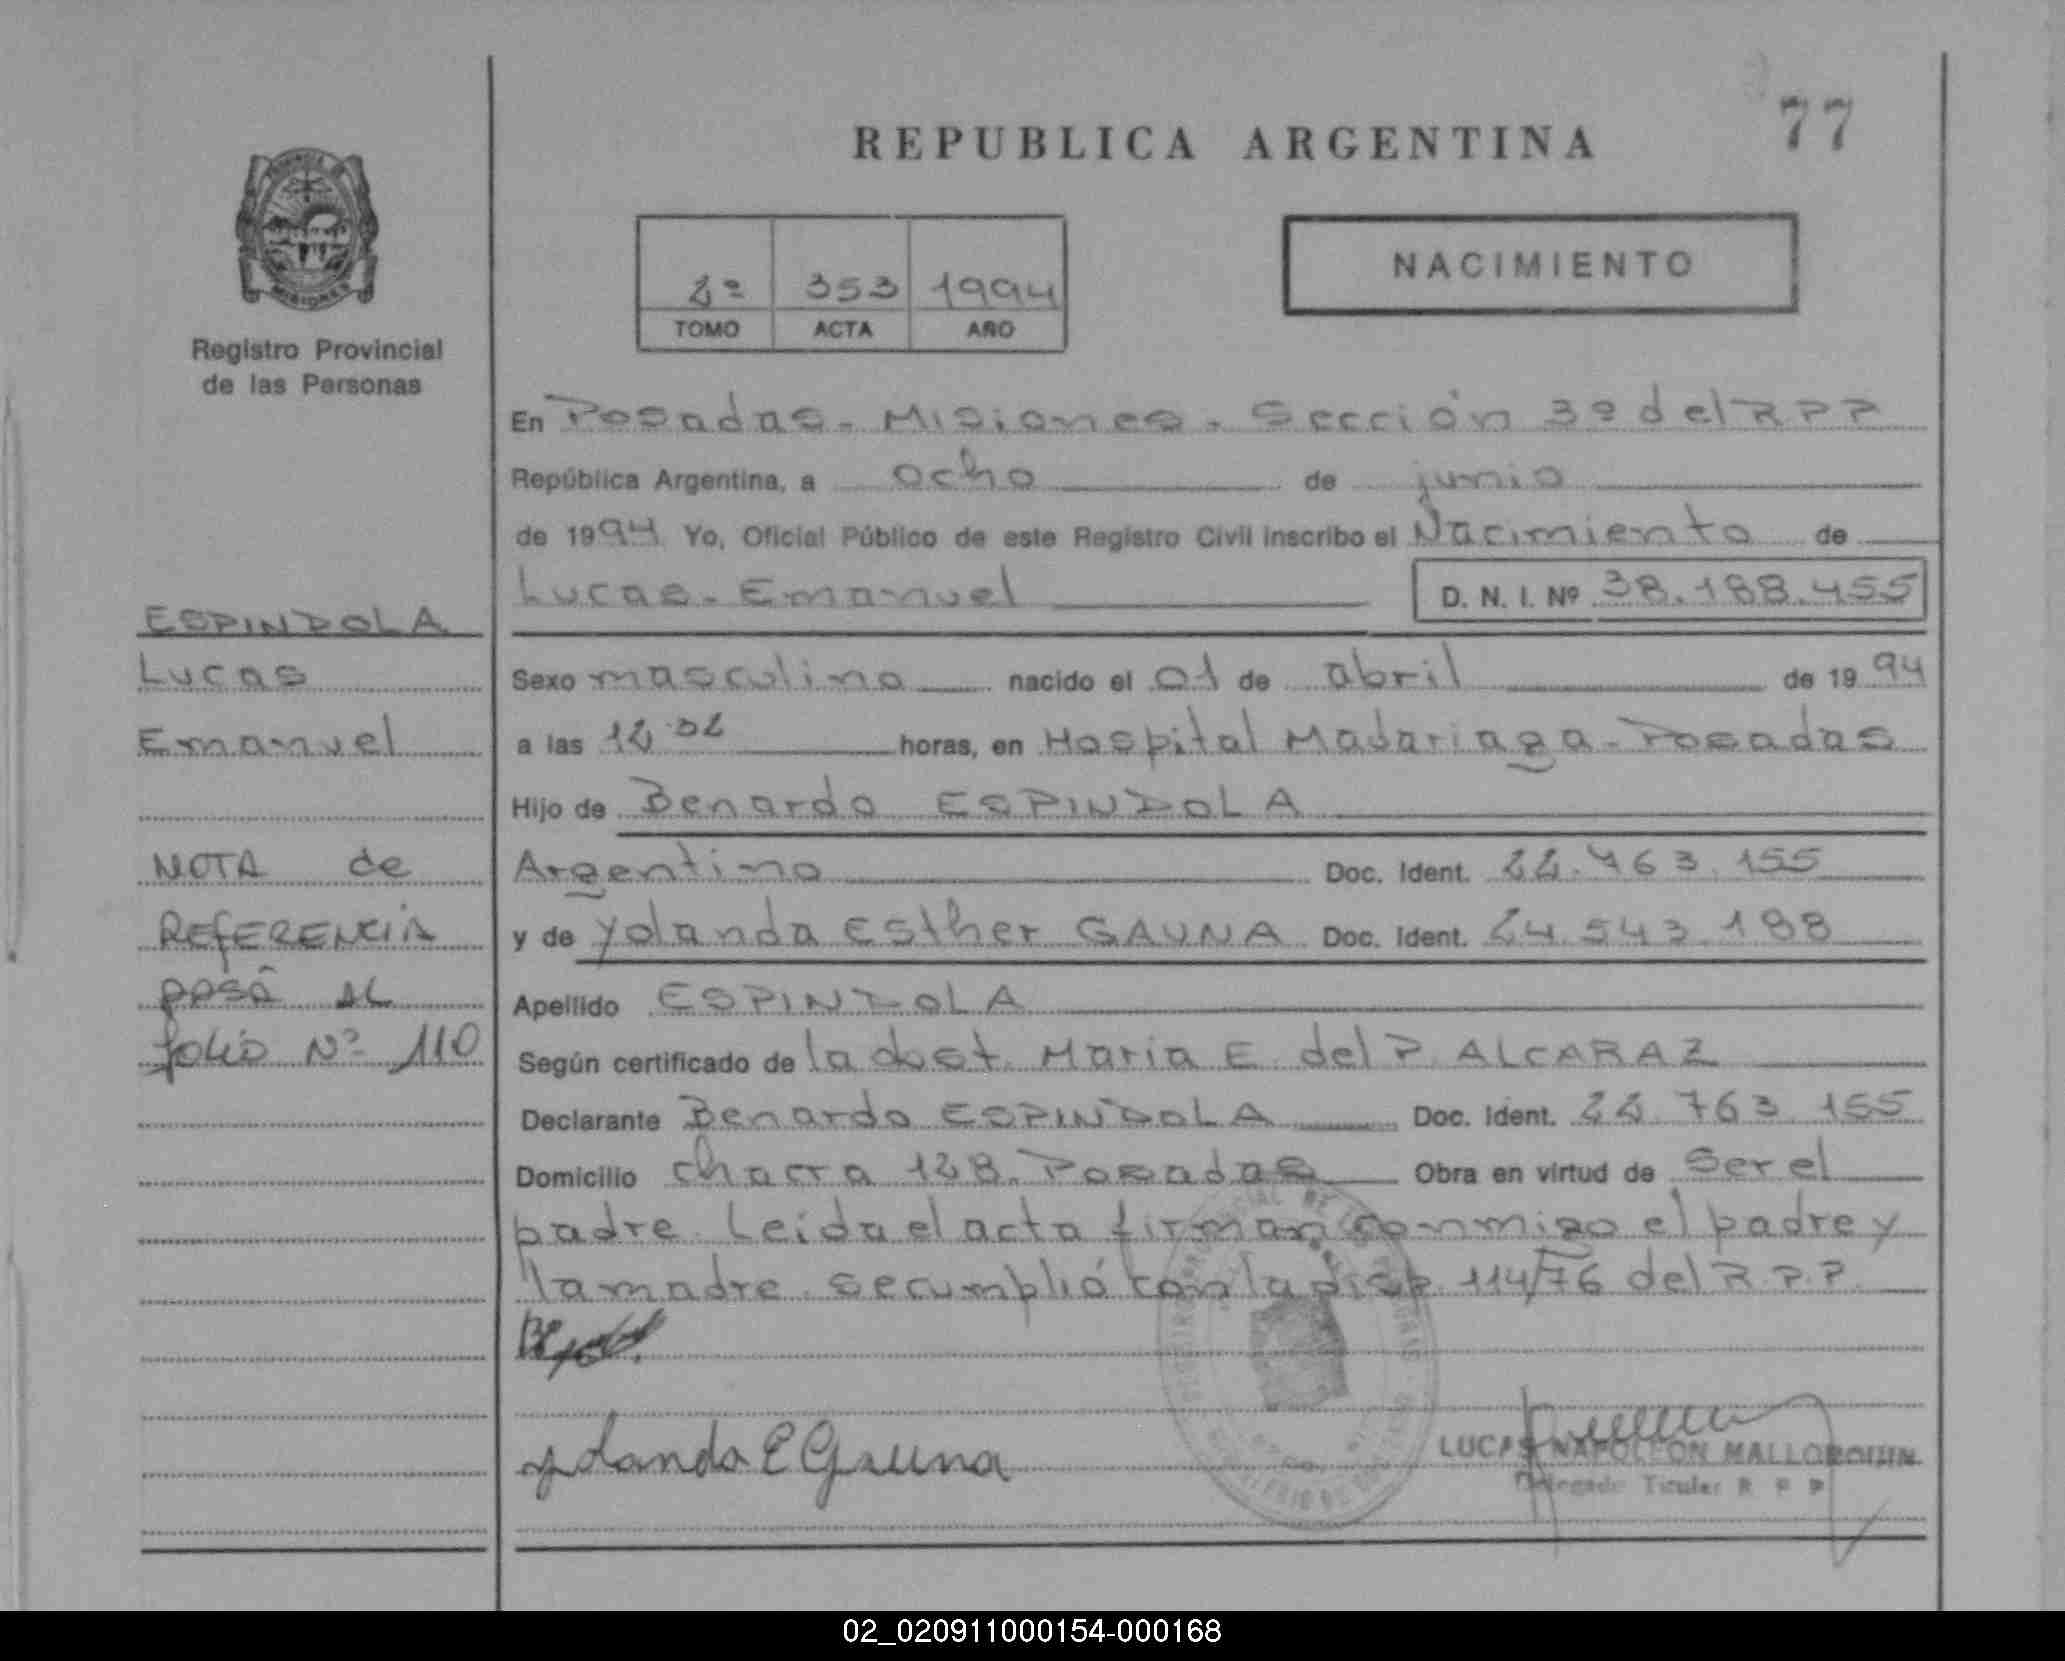 77
REPUBLICA ARGENTINA
NACIMIENTO
2º 353 1994
TOMO ACTA AÑO
MISIONES
Registro Provincial
de las Personas
En Posadas - Misiones - Sección 3º del RPP
República Argentina, a ocho de junio
de 1994 Yo, Oficial Público de este Registro Civil inscribo el Nacimiento de
Lucas - Emanuel D. N. I. Nº 38.188.455
ESPINDOLA
Lucas
Emanuel
NOTA de
REFERENCIA
PASA AL
folio Nº 110
Sexo masculino nacido el 01 de abril de 1994
a las 12.32 horas, en Hospital Madariaga - Posadas
Hijo de Benardo ESPINDOLA
Argentino Doc. Ident. 22.763.155
y de Yolanda Esther GAUNA Doc. Ident. 24.543.188
Apellido ESPINDOLA
Según certificado de la obst. Maria E. del P. ALCARAZ
Declarante Benardo ESPINDOLA Doc. Ident. 22.763.155
Domicilio chacra 128. Posadas Obra en virtud de Ser el
padre. Leida el acta firman conmigo el padre y
la madre. se cumplió con la disp. 114/76 del R.P.P.
Yolanda E Gauna
LUCAS NAPOLEON MALLORQUIN
Delegado Titular R P P
02_020911000154-000168